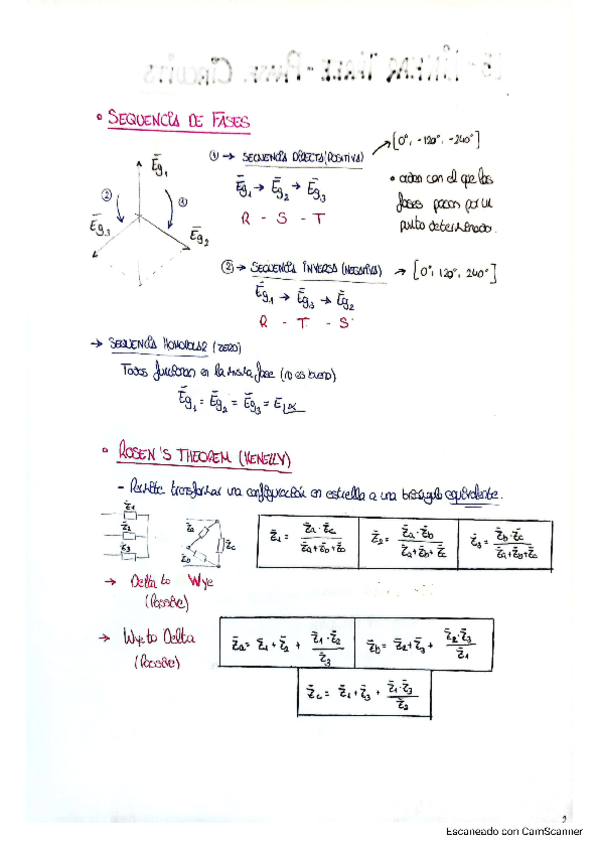 • SEQUENCIA DE FASES
① → SECUENCIA DIRECTA (POSITIVA) → [0°, -120°, -240°]
Ēg₁ → Ēg₂ → Ēg₃
R - S - T
• orden con el que las
fases pasan por un
punto determinado.
Ēg₁
② ①
Ēg₃
Ēg₂
② → SECUENCIA INVERSA (NEGATIVA) → [0°, 120°, 240°]
Ēg₁ → Ēg₃ → Ēg₂
R - T - S
→ SEQUENCIA HOMOPOLAR (ZERO)
Todas funcionan en la misma fase (no es bueno)
Ēg₁ = Ēg₂ = Ēg₃ = E∠α
• ROSEN'S THEOREM (KENELLY)
- Permite transformar una configuración en estrella a una triángulo equivalente.
z̄1
z̄2
z̄3
z̄a
z̄b
z̄c
z̄1 = z̄a · z̄c / z̄a + z̄b + z̄c
z̄2 = z̄a · z̄b / z̄a + z̄b + z̄c
z̄3 = z̄b · z̄c / z̄a + z̄b + z̄c
→ Delta to Wye
(Passive)
→ Wye to Delta
(Passive)
z̄a = z̄1 + z̄2 + z̄1 · z̄2 / z̄3
z̄b = z̄2 + z̄3 + z̄2 · z̄3 / z̄1
z̄c = z̄1 + z̄3 + z̄1 · z̄3 / z̄2
2
Escaneado con CamScanner